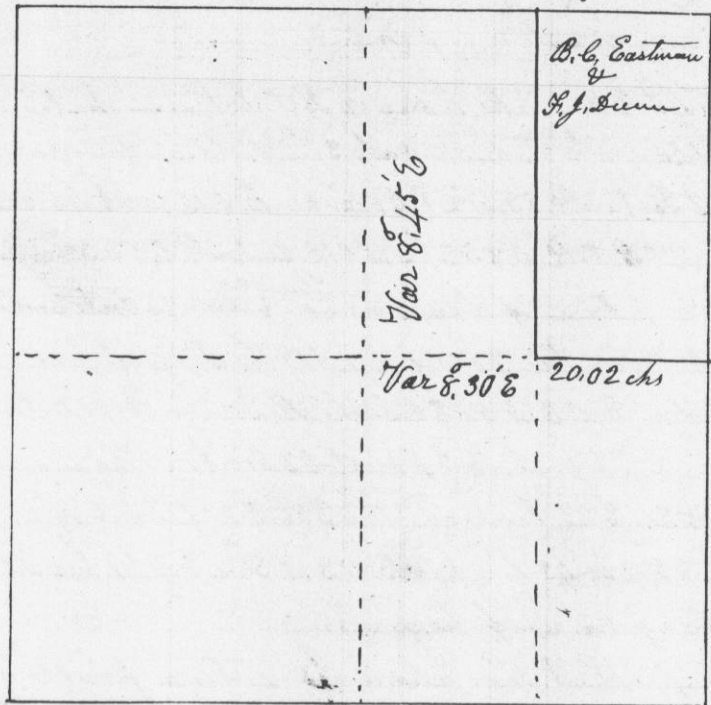 B. C. Eastman
&
F. J. Dunn
Var 8° 45' E
Var 8° 30' E
20.02 chs